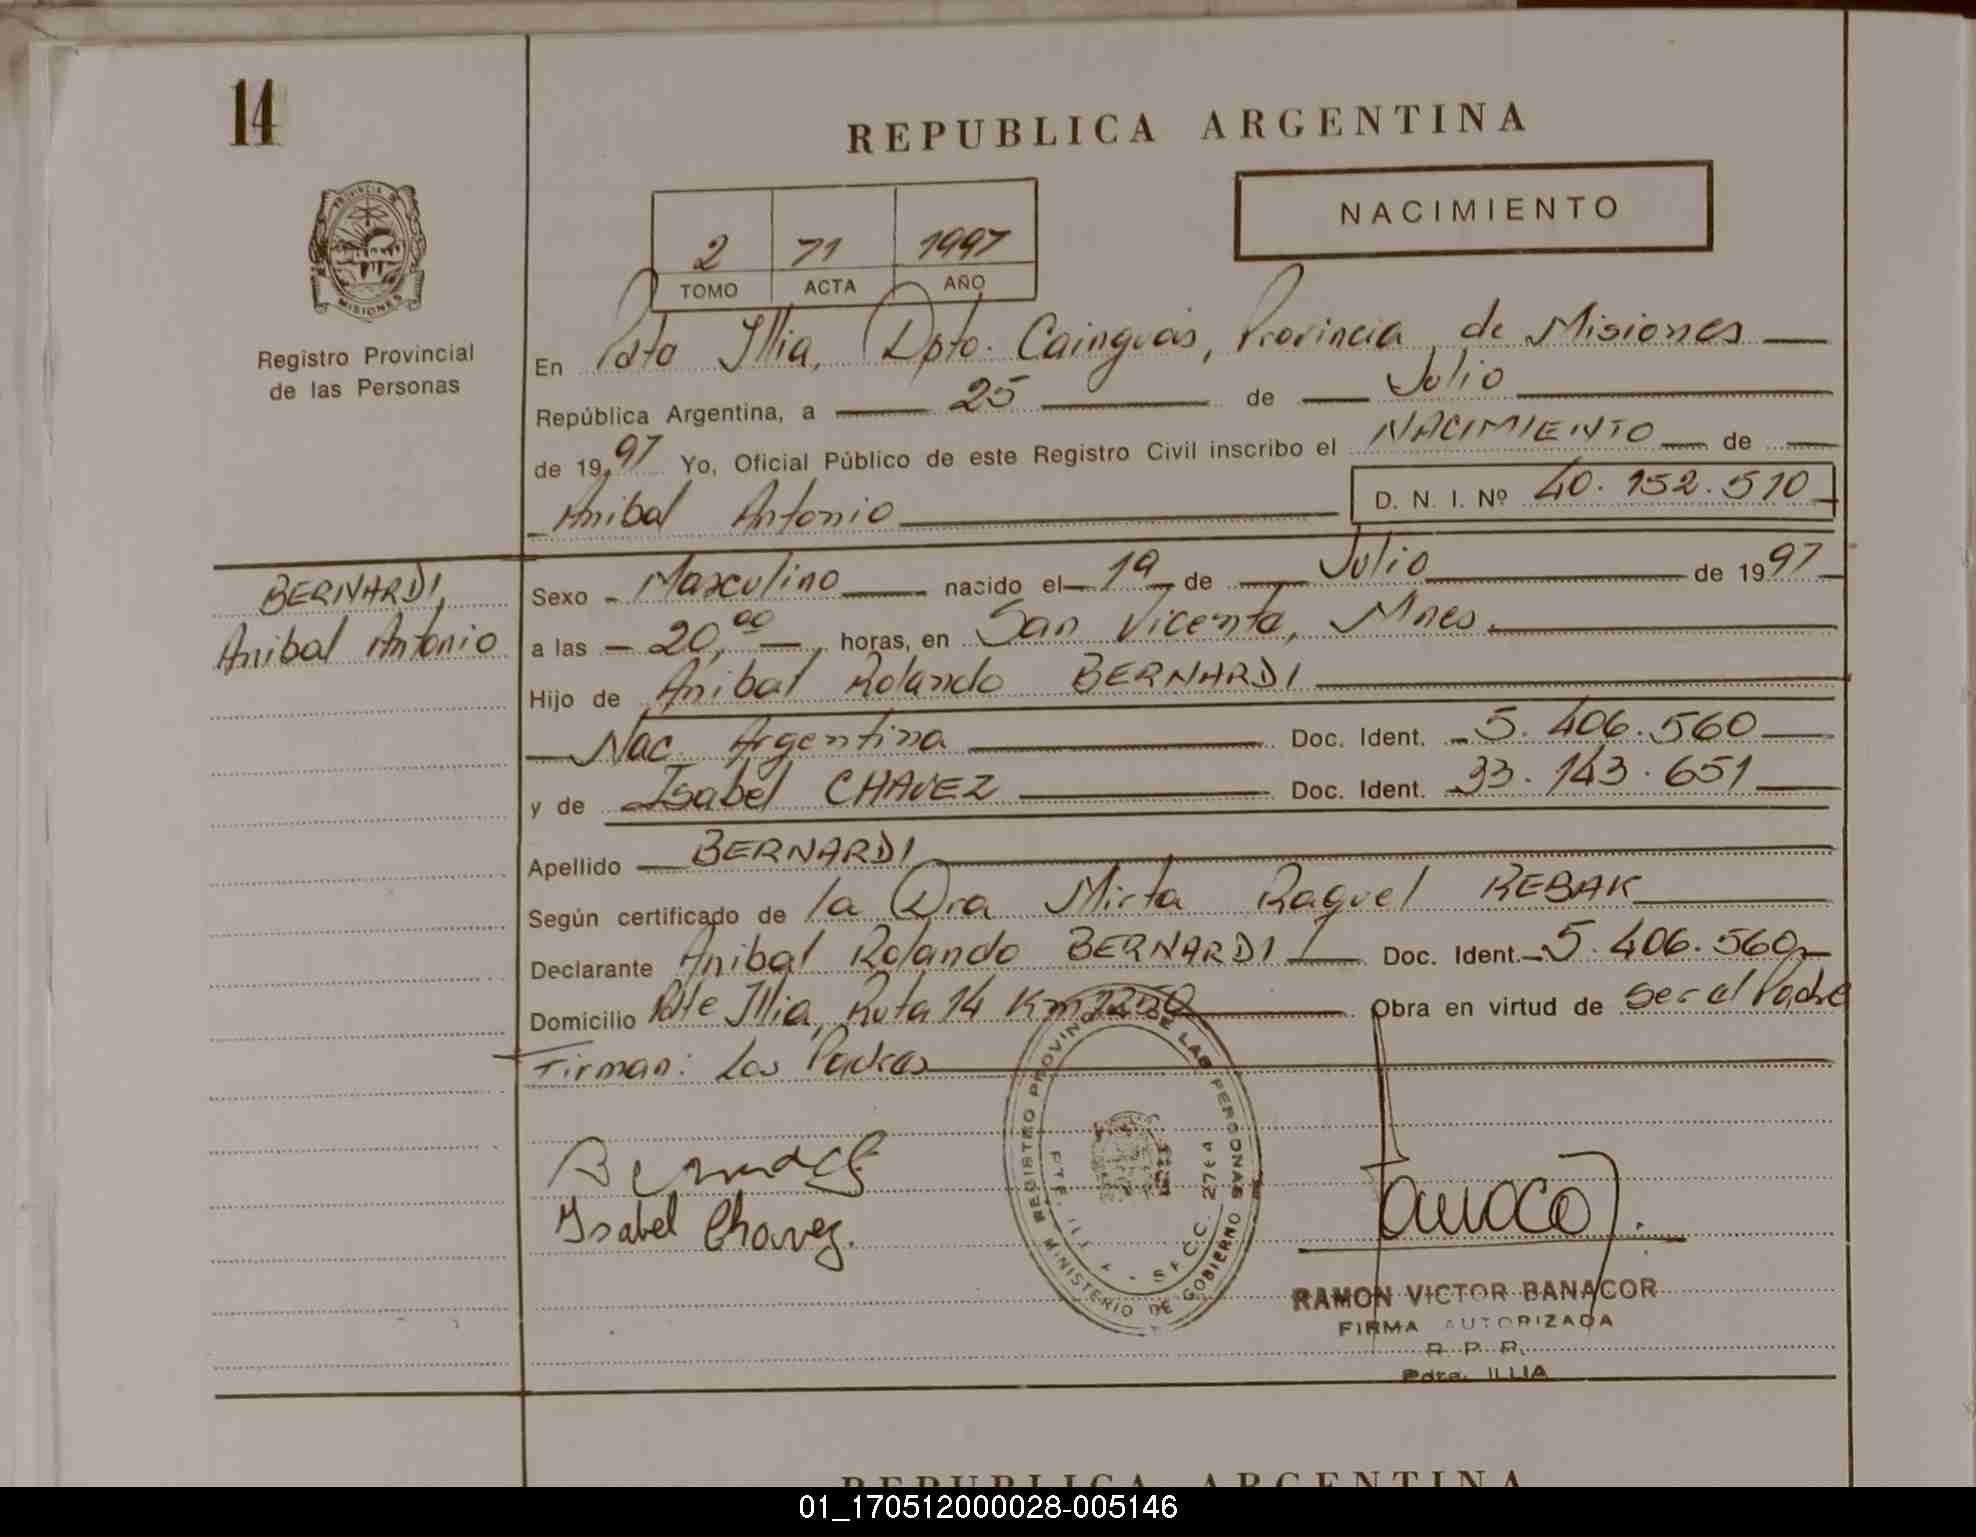 14
REPUBLICA ARGENTINA
NACIMIENTO
2 71 1997
TOMO ACTA AÑO
PROVINCIA DE
MISIONES
Registro Provincial
de las Personas
En Pdte Illia, Dpto. Cainguás, Provincia de Misiones
República Argentina, a 25 de Julio
de 1997 Yo, Oficial Público de este Registro Civil inscribo el NACIMIENTO de
Anibal Antonio D. N. I. Nº 40.152.510
BERNARDI,
Anibal Antonio
Sexo Masculino nacido el 19 de Julio de 1997
a las 20,00 horas, en San Vicente, Mnes.
Hijo de Anibal Rolando BERNARDI
Nac. Argentina Doc. Ident. 5.406.560
y de Isabel CHAVEZ Doc. Ident. 33.143.651
Apellido BERNARDI
Según certificado de la Dra Mirta Raquel REBAK
Declarante Anibal Rolando BERNARDI Doc. Ident. 5.406.560
Domicilio Pdte Illia, Ruta 14 Km 1250 Obra en virtud de ser el Padre
Firman: Los Padres
Isabel Chavez.
REGISTRO PROVINCIAL DE LAS PERSONAS
MINISTERIO DE GOBIERNO
S.F.C.C. 2764
RAMON VICTOR BANACOR
FIRMA AUTORIZADA
R. P. P.
Pdte. ILLIA
REPUBLICA ARGENTINA
01_170512000028-005146